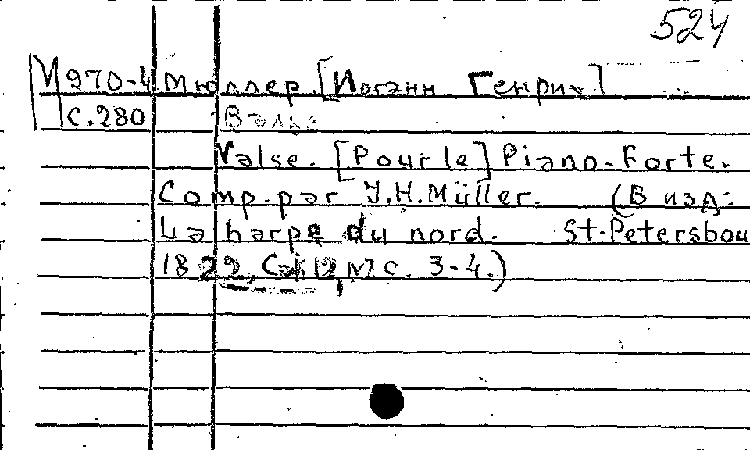 524
М970-4 Мюллер, [Иоганн Генрих]
с.280 Вальс
Valse. [Pour le] Piano-Forte.
Comp. par J.H. Müller. (В изд:
La harpe du nord. St-Petersbou
1822, с. 3-4.)